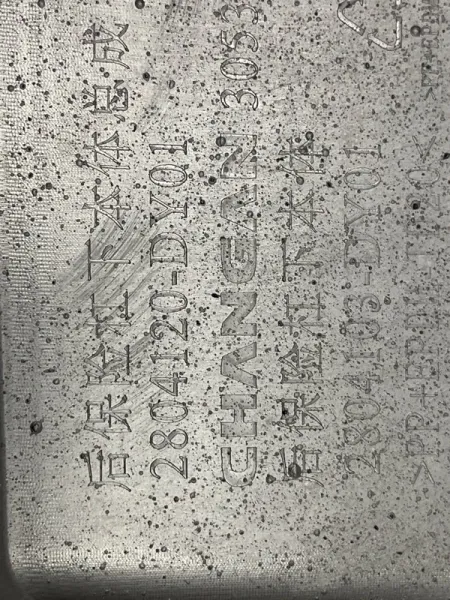 后保险杠下本体总成
2804120-DY01
CHANGAN 3053
后保险杠下本体
2804103-DY01